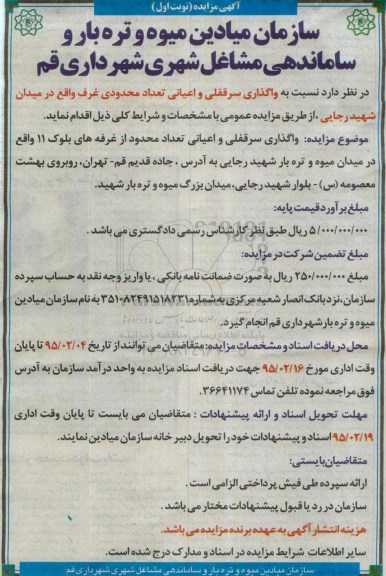 آگهی مزایده (نوبت اول)
سازمان میادین میوه و تره بار و
ساماندهی مشاغل شهری شهرداری قم
در نظر دارد نسبت به واگذاری سرقفلی و اعیانی تعداد محدودی غرف واقع در میدان
شهید رجایی ، از طریق مزایده عمومی با مشخصات و شرایط کلی ذیل اقدام نماید.
موضوع مزایده: واگذاری سرقفلی و اعیانی تعداد محدود از غرفه های بلوک ۱۱ واقع
در میدان میوه و تره بار شهید رجایی به آدرس ، جاده قدیم قم- تهران، روبروی بهشت
معصومه (س)- بلوار شهید رجایی، میدان بزرگ میوه و تره بار شهید.
مبلغ برآورد قیمت پایه:
۵/۰۰۰/۰۰۰/۰۰۰ ریال طبق نظر کارشناس رسمی دادگستری می باشد .
مبلغ تضمین شرکت در مزایده:
مبلغ ۲۵۰/۰۰۰/۰۰۰ ریال به صورت ضمانت نامه بانکی ، یا واریز وجه نقد به حساب سپرده
سازمان، نزد بانک انصار شعبه مرکزی به شماره ۱-۸۲۴۹۱۵۱۸۲۳-۳۵۱ به نام سازمان میادین
میوه و تره بار شهرداری قم انجام گیرد.
محل دریافت اسناد و مشخصات مزایده: متقاضیان می توانند از تاریخ ۹۵/۰۲/۰۴ تا پایان
وقت اداری مورخ ۹۵/۰۲/۱۶ جهت دریافت اسناد مزایده به واحد درآمد سازمان به آدرس
فوق مراجعه نموده تلفن تماس ۳۶۶۴۱۱۷۴.
مهلت تحویل اسناد و ارائه پیشنهادات : متقاضیان می بایست تا پایان وقت اداری
۹۵/۰۲/۱۹ اسناد و پیشنهادات خود را تحویل دبیر خانه سازمان میادین نمایند.
متقاضیان بایستی:
ارائه سپرده طی فیش پرداختی الزامی است .
سازمان در رد یا قبول پیشنهادات مختار می باشد .
هزینه انتشار آگهی به عهده برنده مزایده می باشد.
سایر اطلاعات شرایط مزایده در اسناد و مدارک درج شده است.
سازمان میادین میوه و تره بار و ساماندهی مشاغل شهری شهرداری قم